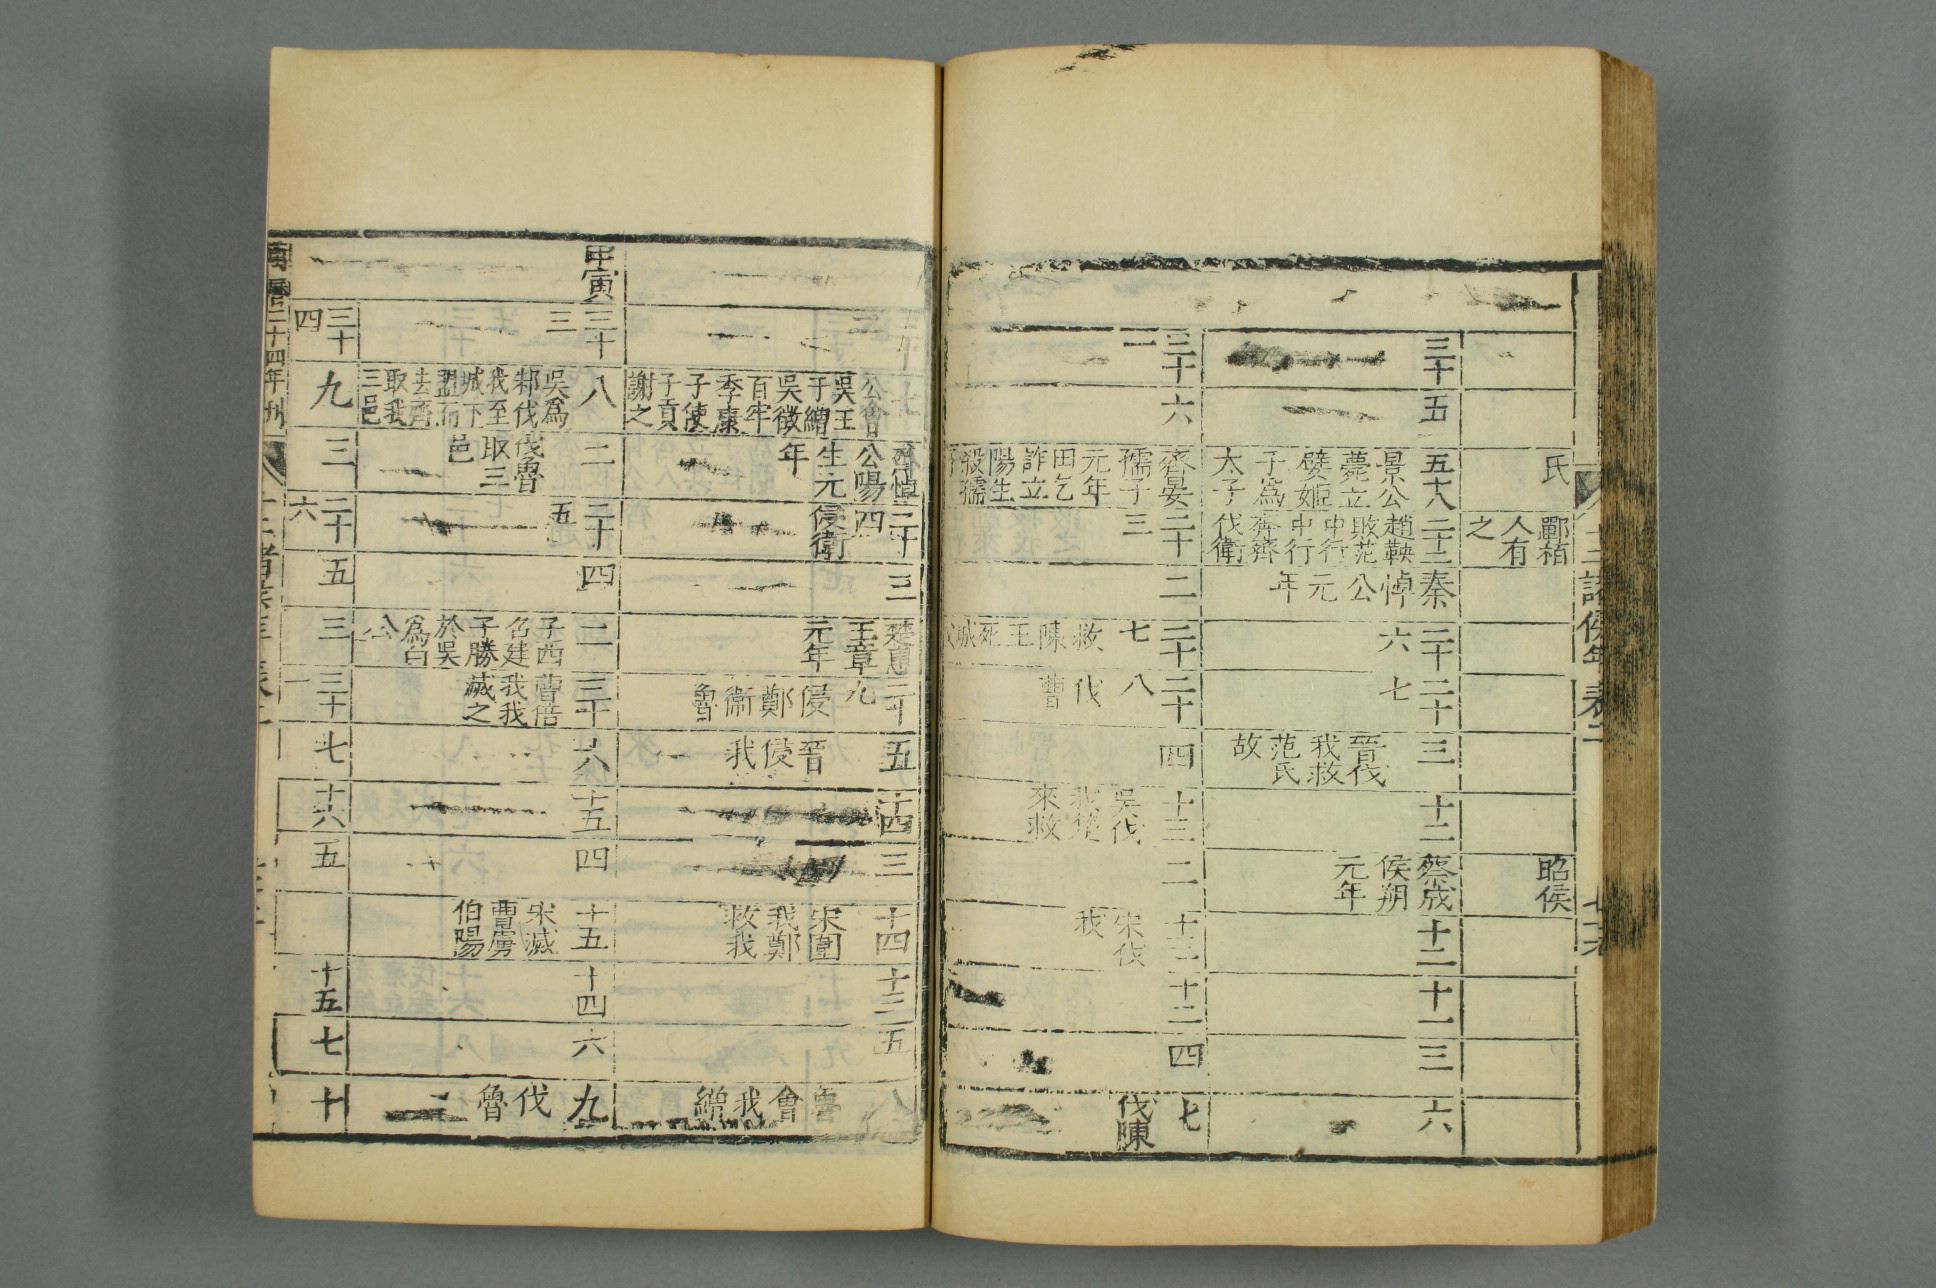 十二諸侯年表二
氏
鄲栢
人有
之
昭侯
三十
五
五十八
景公
薨立
嬖姬
子為
太子
二十二
趙鞅
敗范
中行
中行
奔齊
伐衛
秦
悼公
元年
二十
六
二十
七
三
晉伐
我救
范氏
故
十二
蔡成
侯朔
元年
十二
十一
三
六
三十
一
六
齊晏
孺子
元年
田乞
詐立
陽生
殺孺
二十
三
二
二十
七
救
陳
王
死
城
二十
八
伐
曹
四
十三
吳伐
我楚
來救
二
十三
宋伐
我
十二
四
七
伐陳
公會
吳王
于繒
吳徵
百牢
季康
子使
子貢
謝之
齊悼
公陽
生元
年
二十
四
侵衛
三
楚惠
王章
元年
二十
九
侵
鄭
衛
魯
五
晉
侵
我
十四
三
十四
宋圍
我鄭
救我
十三
五
八
魯
會
我
繒
甲寅
三十
三
八
吳為
邾伐
我至
城下
盟而
去齊
取我
三邑
二
伐魯
取三
邑
二十
五
四
二
子西
召建
子勝
於吳
為白
公
三十
曹倍
我我
滅之
六
十五
四
十五
宋滅
曹虜
伯陽
十四
六
九
伐
魯
三十
四
九
三
二十
六
五
三
三十
一
七
十六
五
十五
七
十
萬曆二十四年刊